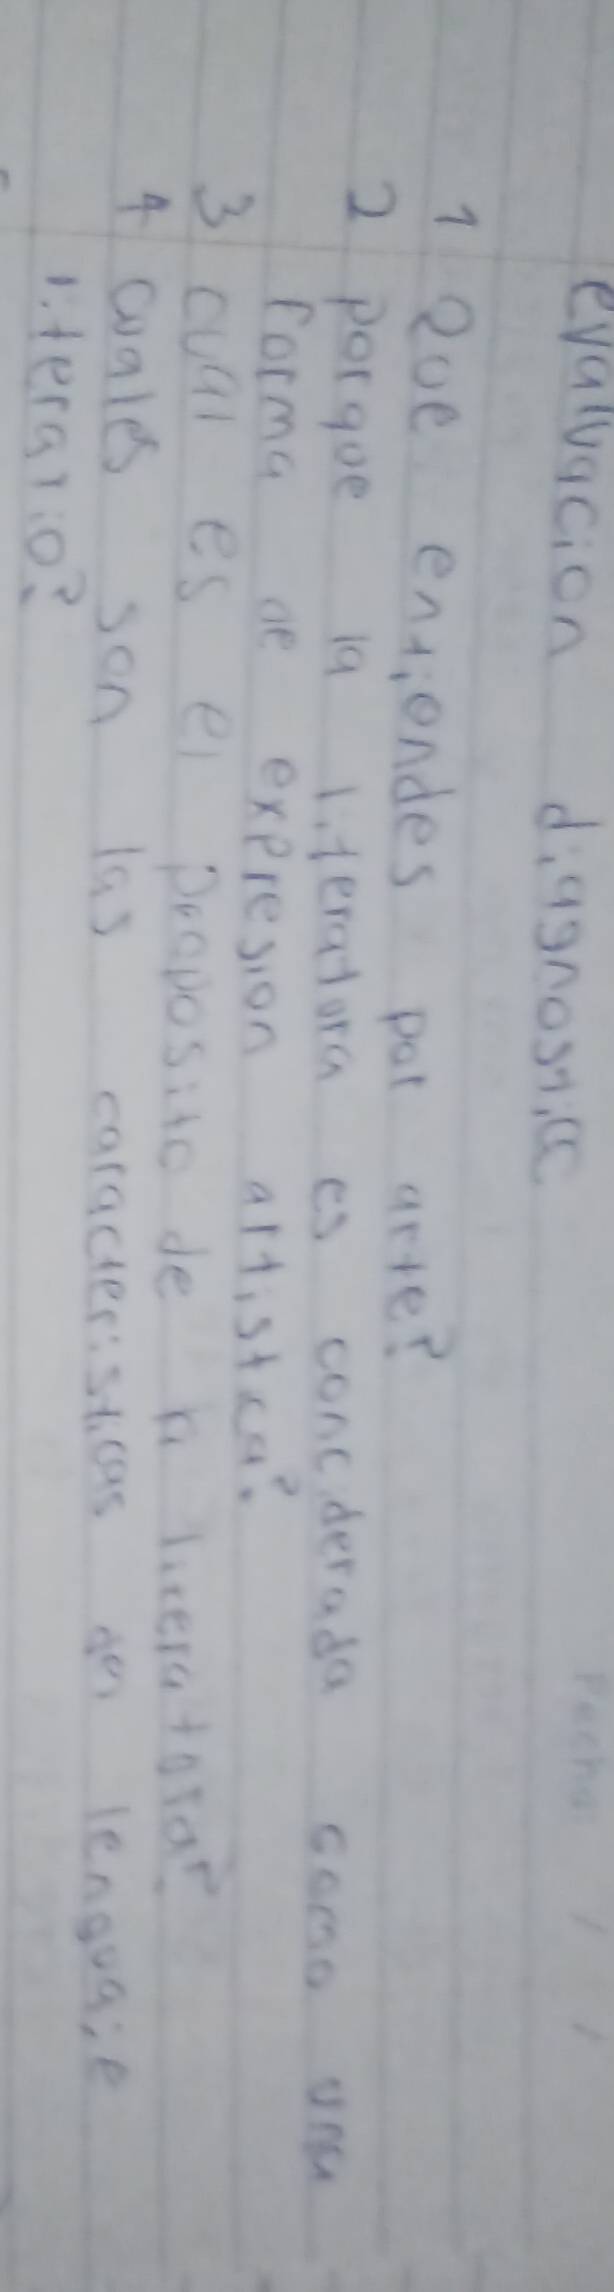 Fecha: / /
evaluacion diagnostica
1 Que entiendes por arte?
2 porque la literatura es conciderada como una
forma de expresion artistica?
3 cual es el proposito de la literatura?
4 cuales son las caracteristicas del lenguaje
literario?